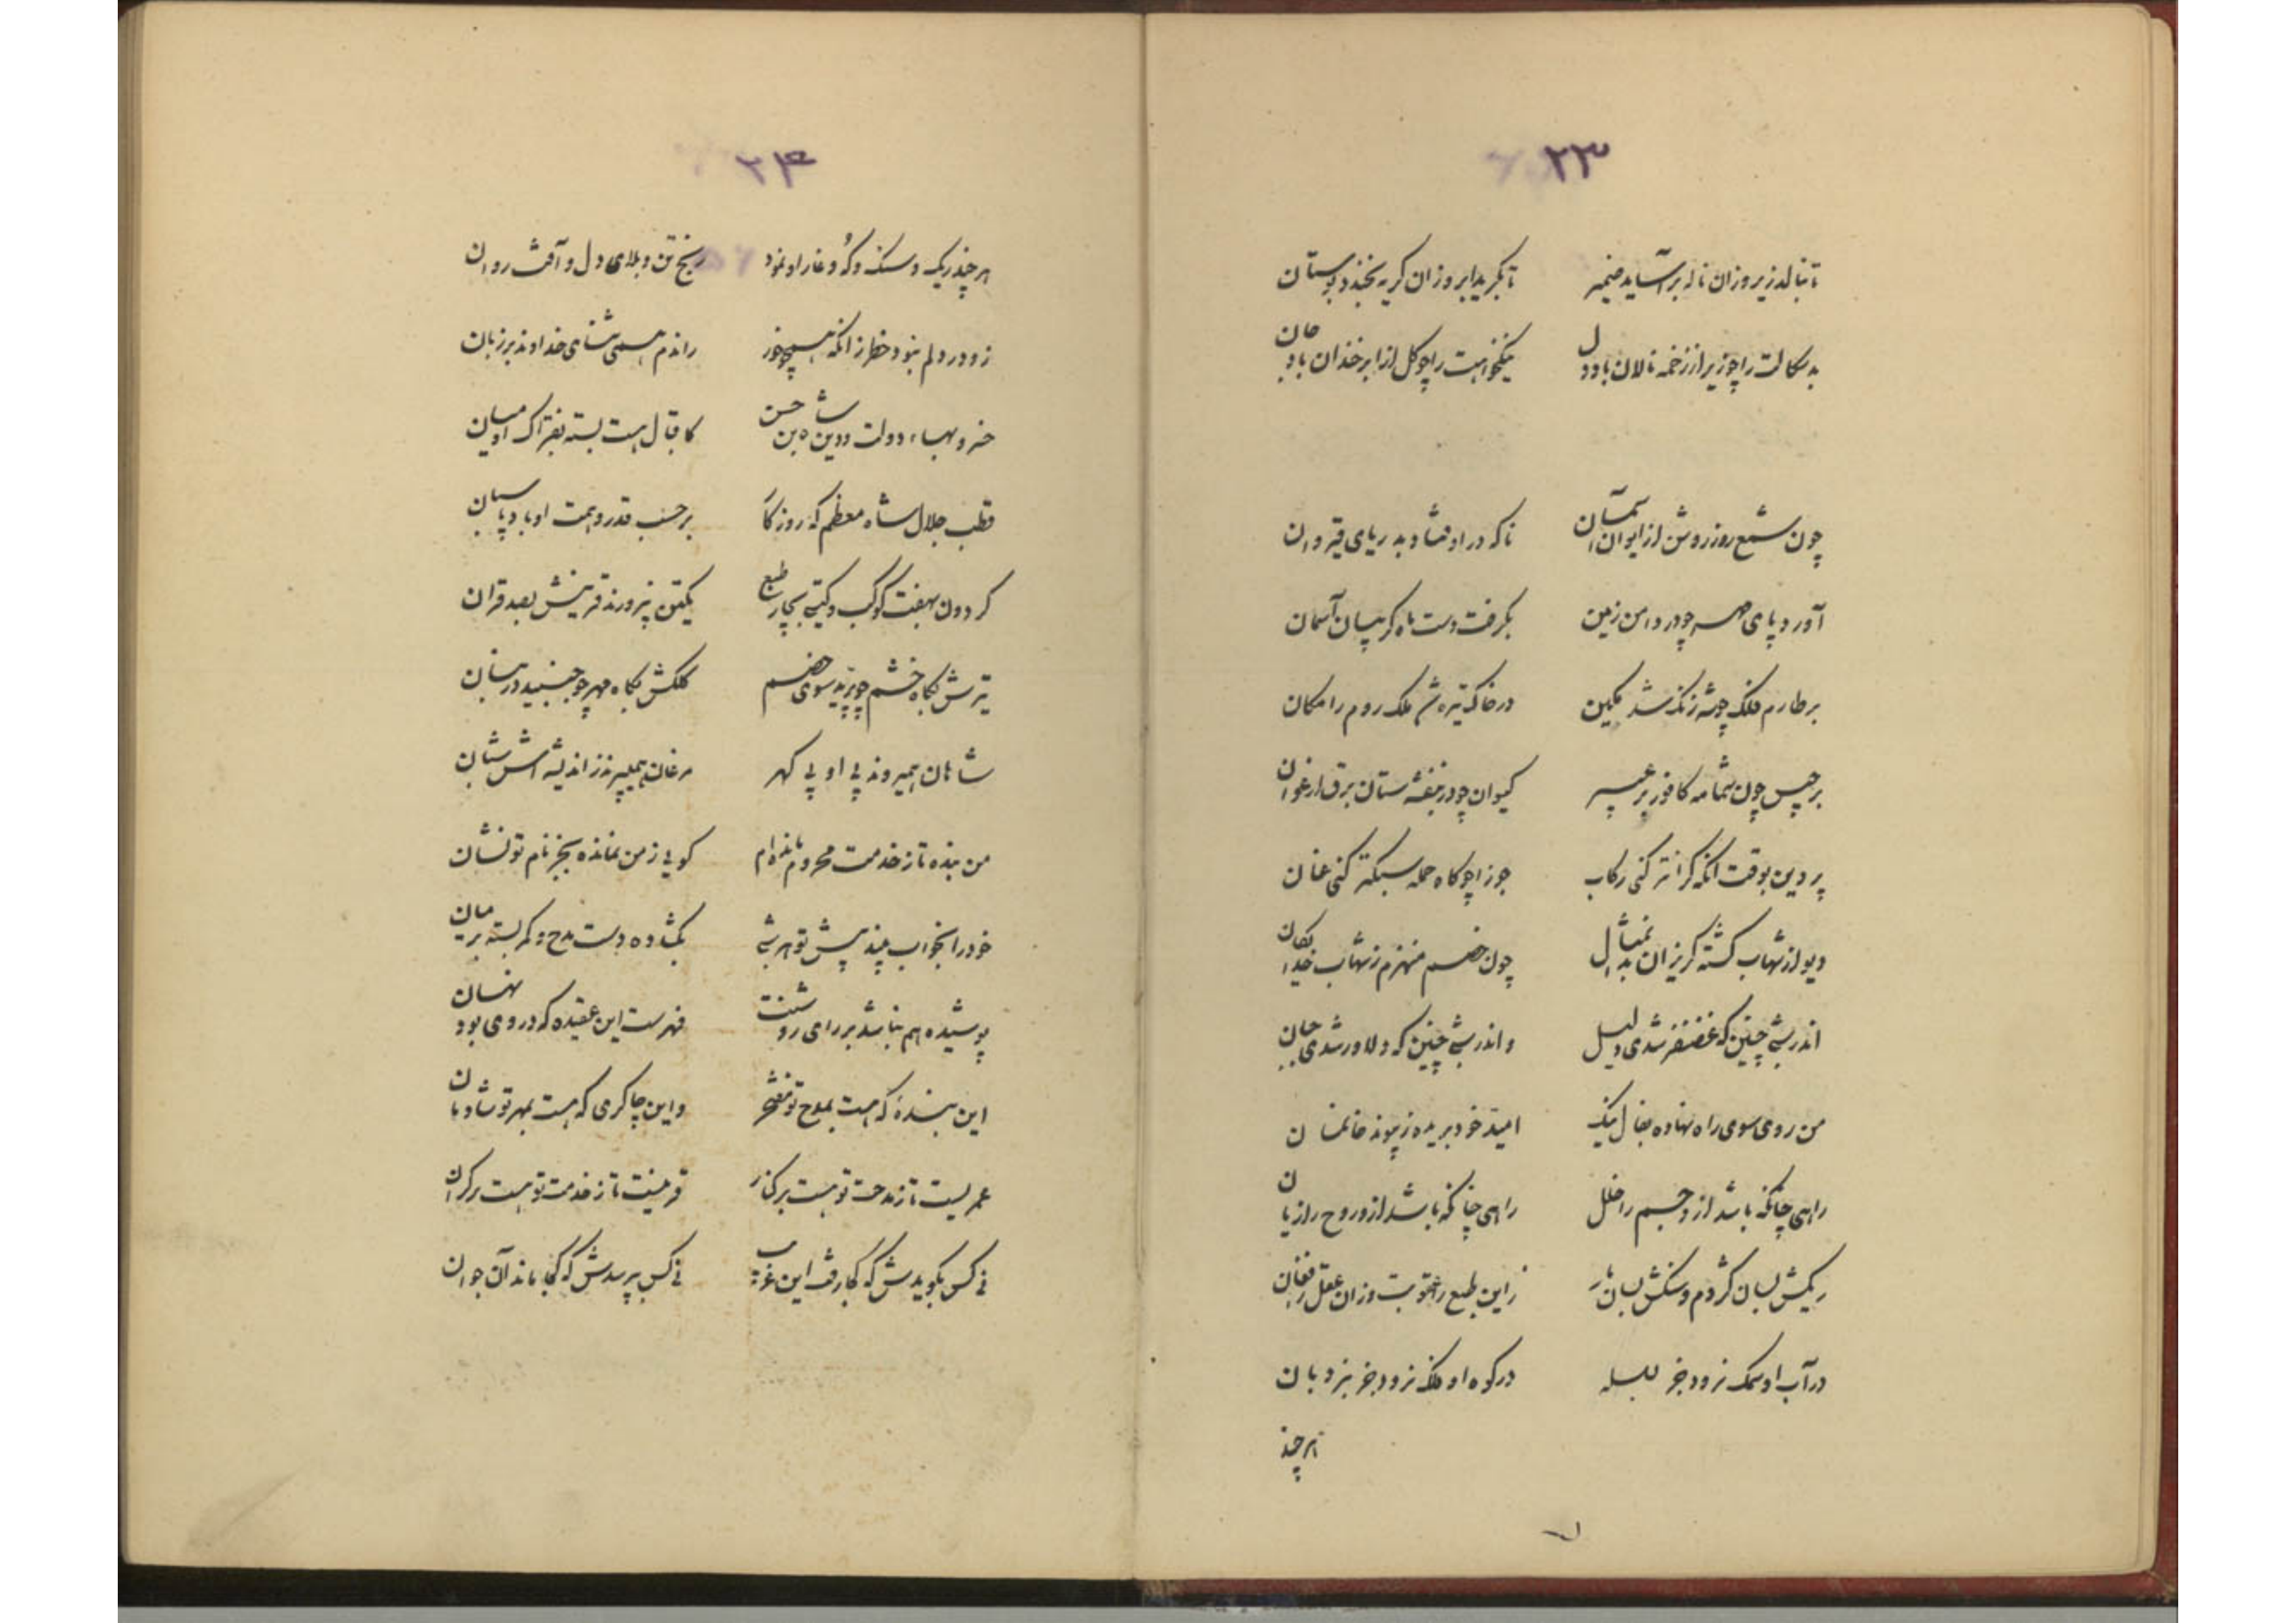 ۲۳
تا بنالد زیر وزان ناله برآساید ضمیر تا بگرید ابر وزان گریه بخندد بوستان
بدسکالت را چو زیر از زخمه نالان باد دل نیکخواهت را چو گل از ابر خندان باد جان
چون شمع روز روشن از ایوان آسمان ناگه در اوفتاد بدریای قیروان
آورد پای مهر چو در دامن زمین بگرفت دست ماه گریبان آسمان
بر طارم فلک چو شه زنگ شد مکین در خاک تیره شد ملک روم را مکان
برجیس چون شمامه کافور بر عبیر کیوان چو در بنفشه ستان برگ ارغوان
پروین بوقت آنکه گرانتر کنی رکاب جوزا چو گاه حمله سبکتر کنی عنان
دیو از شهاب گشته گریزان بدان مثال چون خصم منهزم ز شهاب خدایگان
اندر شبی چنین که غضنفر شدی دلیل و اندر شبی چنین که دلاور شدی جبان
من روی سوی راه نهاده بفال نیک امید خود بریده ز پیوند خانمان
راهی چنانکه باشد ازو جسم را خلل راهی چنانکه باشد ازو روح را زیان
ریگش بسان کژدم و سنگش بسان مار زاین طبع را عقوبت وزان عقل را فغان
در آب او سمک نرود جز بسلسله در کوه او ملک نرود جز بنردبان
هر چند
۲۴
هر چند ریگ و سنگ و که و غار او نمود رنج تن و بلای دل و آفت روان
زو در دلم نبود خطر زانکه همچو حرز راندم همی ثنای خداوند بر زبان
خسرو بهاء دولت و دین شاه بن حسن کاقبال هست بسته بفتراک او میان
قطب جلال شاه معظم که روزگار بر حسب قدر و همت او باد پاسبان
گردون بهفت کوکب و گیتی بچار طبع یکتن نپرورند قرینش بصد قران
تیرش بگاه خشم چو پرید سوی خصم کلکش بگاه مهر چو جنبید در بنان
شاهان همیروند پی او پی گهر مرغان همیپرند ز اندیشه اش ستان
من بنده تا ز خدمت محروم مانده ام گویی ز من نمانده بجز نام تو نشان
خود را بخواب بیند پیش تو هر شبی بگشاده دست مدح و کمر بسته بر میان
پوشیده هم نباشد بر رای روشنت فهرست این عقیده که در وی بود نهان
این بنده که هست بمدح تو مفتخر واین چاکری که هست بمهر تو شادمان
عمریست تا ز مدحت تو هست بر کنار قرنیست تا ز خدمت تو هست بر کران
نی کس بگویدش که کجا رفت این غریب نی کس بپرسدش که کجا ماند آن جوان